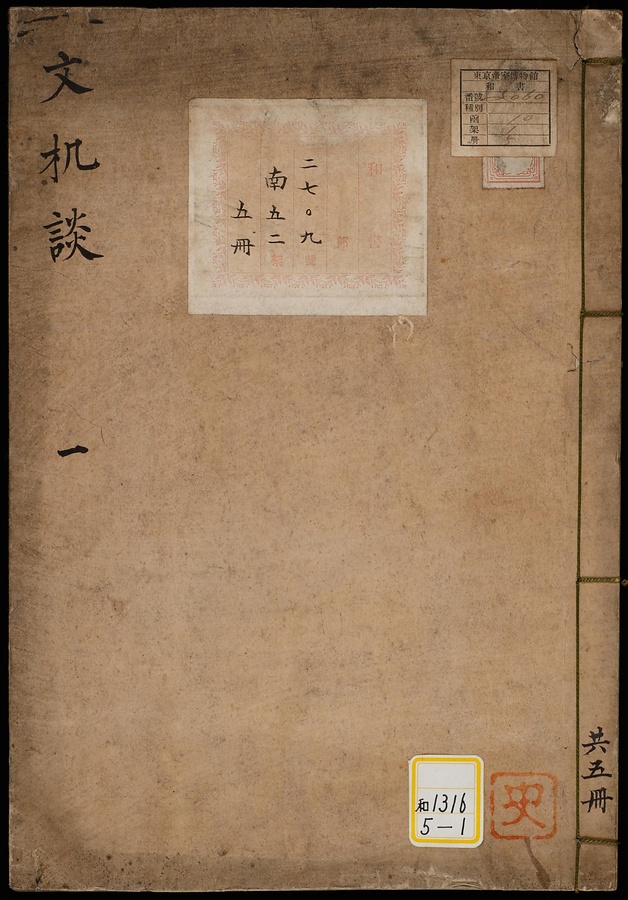 文机談
一
二七〇九
南五二
五冊
和書
部
東京帝室博物館
和書
番號
種別
函 10
架
册
共五冊
史
和1316
5-1